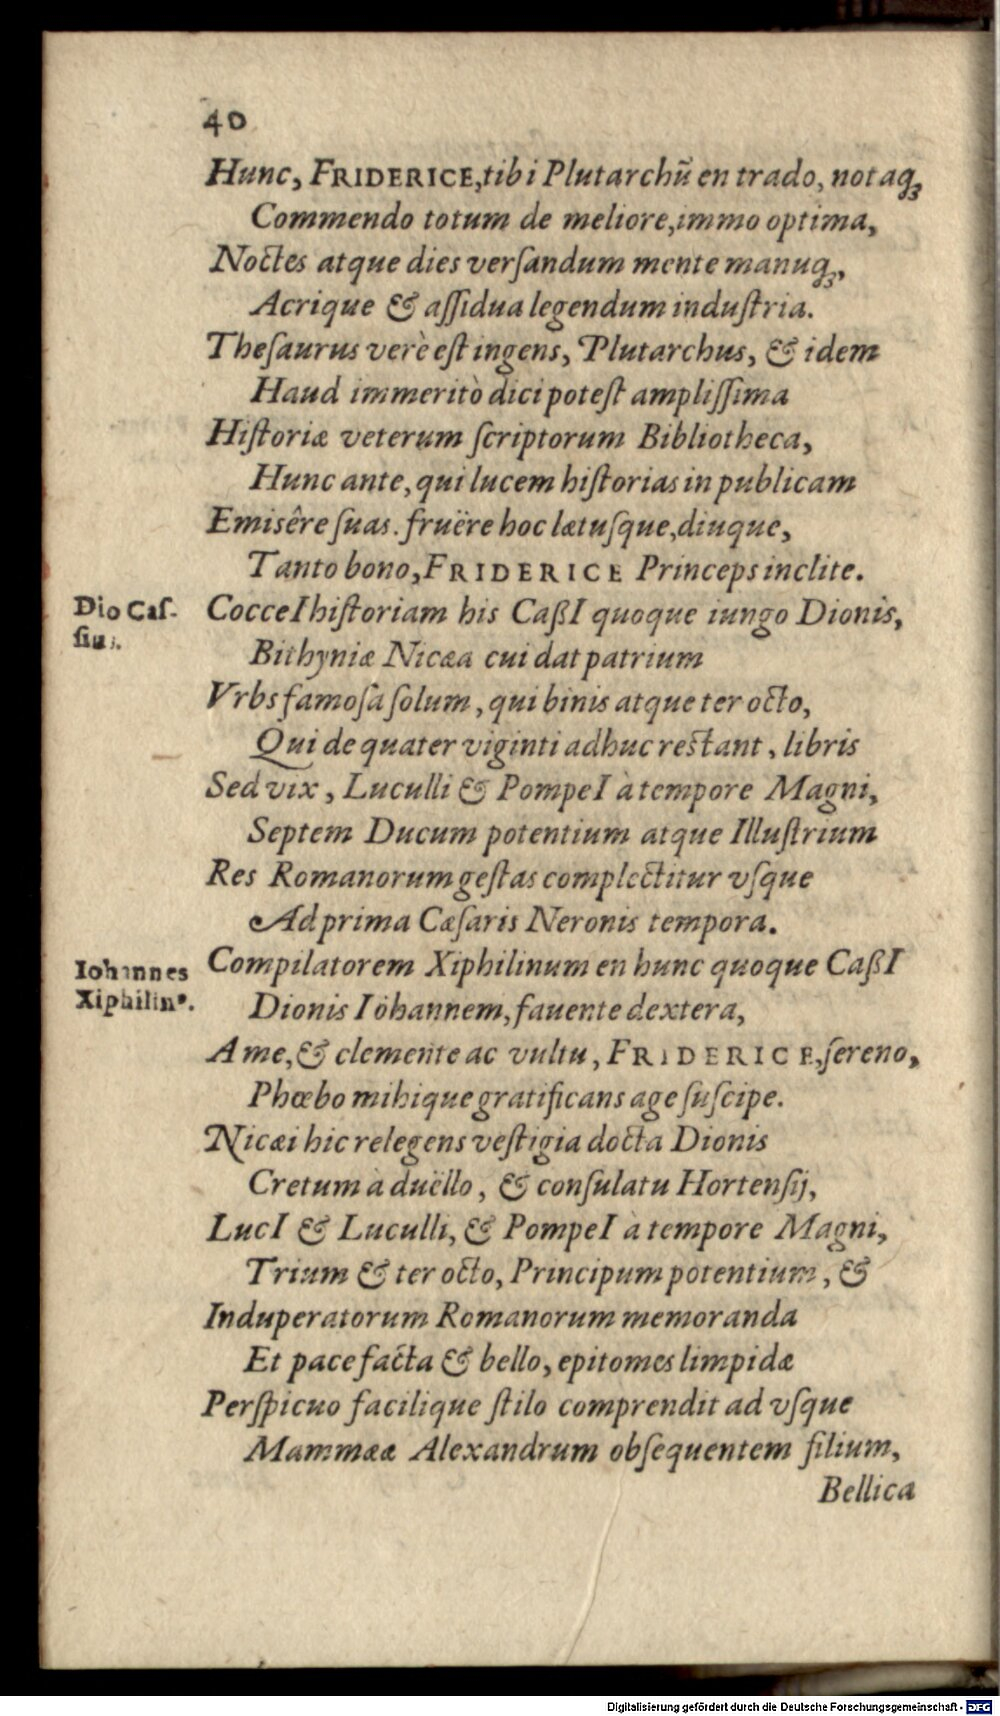 40
Hunc, FRIDERICE, tibi Plutarchū en trado, notaq́ꝫ
Commendo totum de meliore, immo optima,
Noctes atque dies verſandum mente manuq́ꝫ,
Acrique & aſſidua legendum induſtria.
Theſaurus verè eſt ingens, Plutarchus, & idem
Haud immeritò dici poteſt ampliſſima
Hiſtoriæ veterum ſcriptorum Bibliotheca,
Hunc ante, qui lucem hiſtorias in publicam
Emisêre ſuas. fruëre hoc lætuſque, diuque,
Tanto bono, FRIDERICE Princeps inclite.
Dio Caſ-
ſius.
CocceI hiſtoriam his CaßI quoque iungo Dionis,
Bithyniæ Nicæa cui dat patrium
Vrbs famoſa ſolum, qui binis atque ter octo,
Qui de quater viginti adhuc restant, libris
Sed vix, Luculli & PompeI à tempore Magni,
Septem Ducum potentium atque Illuſtrium
Res Romanorum geſtas complectitur vſque
Ad prima Cæſaris Neronis tempora.
Iohannes
Xiphilinꝰ.
Compilatorem Xiphilinum en hunc quoque CaßI
Dionis Iöhannem, fauente dextera,
A me, & clemente ac vultu, FRIDERICE, ſereno,
Phœbo mihique gratificans age ſuſcipe.
Nicæi hic relegens veſtigia docta Dionis
Cretum à duëllo, & conſulatu Hortenſij,
LucI & Luculli, & PompeI à tempore Magni,
Trium & ter octo, Principum potentium, &
Induperatorum Romanorum memoranda
Et pace facta & bello, epitomes limpidæ
Perſpicuo facilique ſtilo comprendit ad vſque
Mammææ Alexandrum obſequentem filium,
Bellica
Digitalisierung gefördert durch die Deutsche Forschungsgemeinschaft - DFG